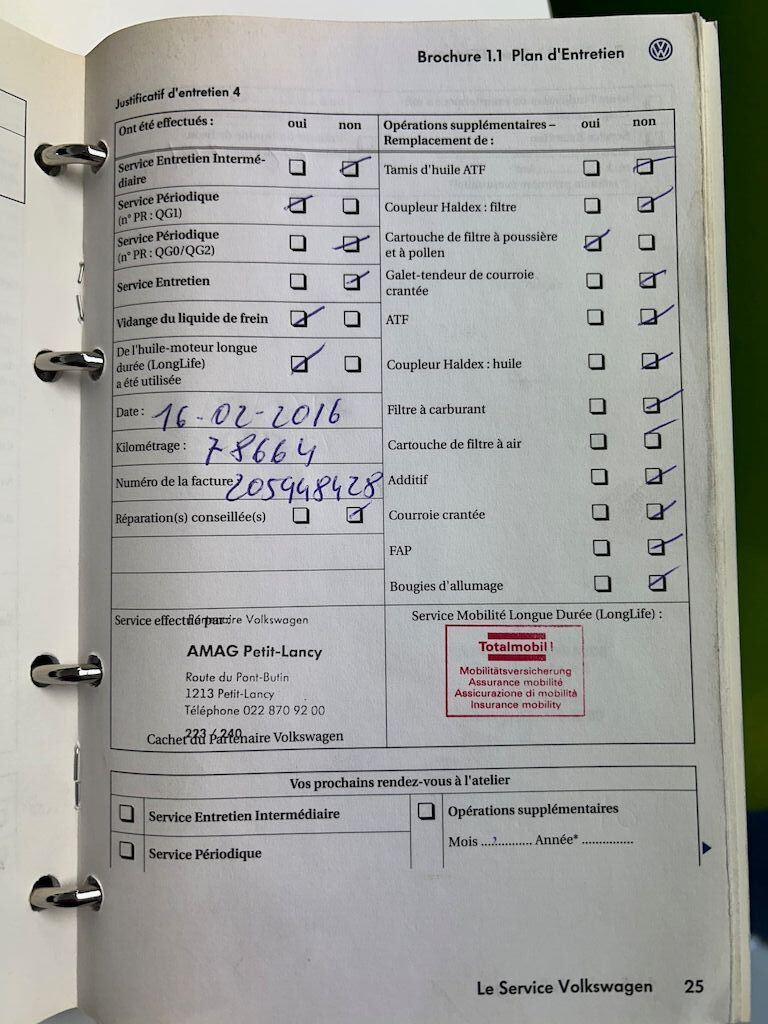 Brochure 1.1 Plan d'Entretien
Justificatif d'entretien 4
Ont été effectués : oui non
Service Entretien Intermé-
diaire
Service Périodique
(n° PR : QG1)
Service Périodique
(n° PR : QG0/QG2)
Service Entretien
Vidange du liquide de frein
De l'huile-moteur longue
durée (LongLife)
a été utilisée
Date : 16-02-2016
Kilométrage : 78664
Numéro de la facture 205948428
Réparation(s) conseillée(s)
Opérations supplémentaires – oui non
Remplacement de :
Tamis d'huile ATF
Coupleur Haldex : filtre
Cartouche de filtre à poussière
et à pollen
Galet-tendeur de courroie
crantée
ATF
Coupleur Haldex : huile
Filtre à carburant
Cartouche de filtre à air
Additif
Courroie crantée
FAP
Bougies d'allumage
Service effectué par :
Partenaire Volkswagen
AMAG Petit-Lancy
Route du Pont-Butin
1213 Petit-Lancy
Téléphone 022 870 92 00
223 / 240
Cachet du Partenaire Volkswagen
Service Mobilité Longue Durée (LongLife) :
Totalmobil !
Mobilitätsversicherung
Assurance mobilité
Assicurazione di mobilità
Insurance mobility
Vos prochains rendez-vous à l'atelier
Service Entretien Intermédiaire
Service Périodique
Opérations supplémentaires
Mois .............. Année* ..............
Le Service Volkswagen 25